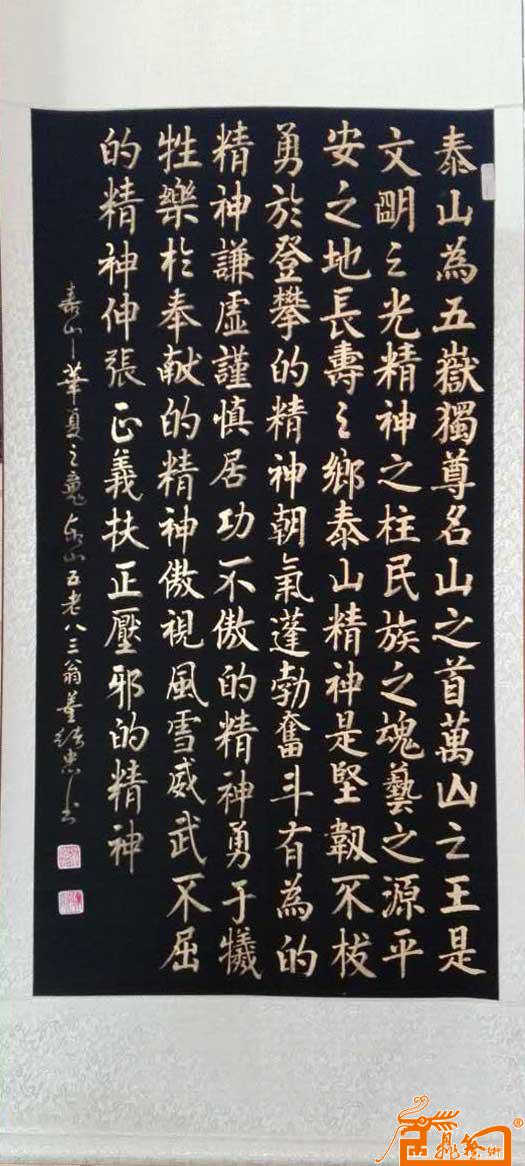 泰山為五嶽獨尊名山之首萬山之王是
文明之光精神之柱民族之魂藝之源平
安之地長壽之鄉泰山精神是堅韌不拔
勇於登攀的精神朝氣蓬勃奮斗有為的
精神謙虛謹慎居功不傲的精神勇于犧
牲樂於奉献的精神傲視風雪威武不屈
的精神伸張正義扶正壓邪的精神
華夏之魂 山五老八三翁董